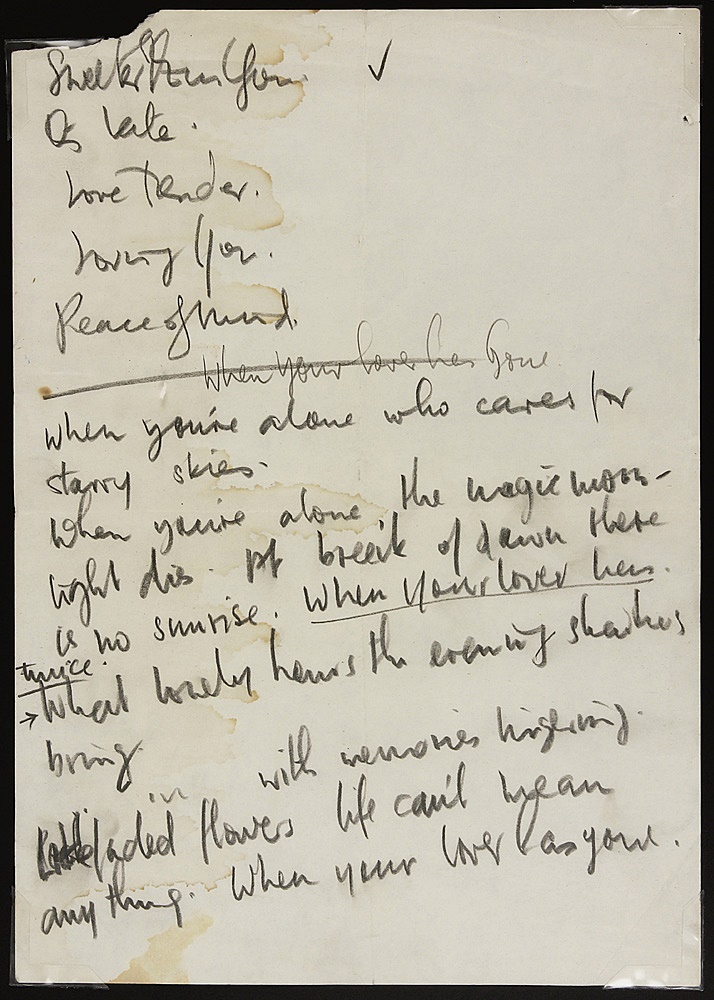 Sweeter Than You ✓
Of Late.
Love Tender.
Loving You.
Peace of Mind.
When Your Lover has Gone
When you're alone who cares for
starry skies.
When you're alone the magic moon-
light dies. At break of dawn there
is no sunrise. When your lover has.
twice.
→ What lonely hours the evening shadows
bring
in with memories lingering.
faded flowers life can't mean
anything. When your lover as gone.